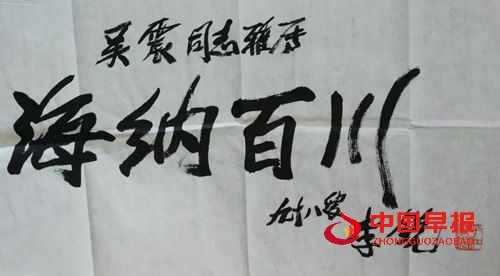 吴震同志雅居
海纳百川
九十八叟
李锐
中国早报
ZHONGGUOZAOBAO